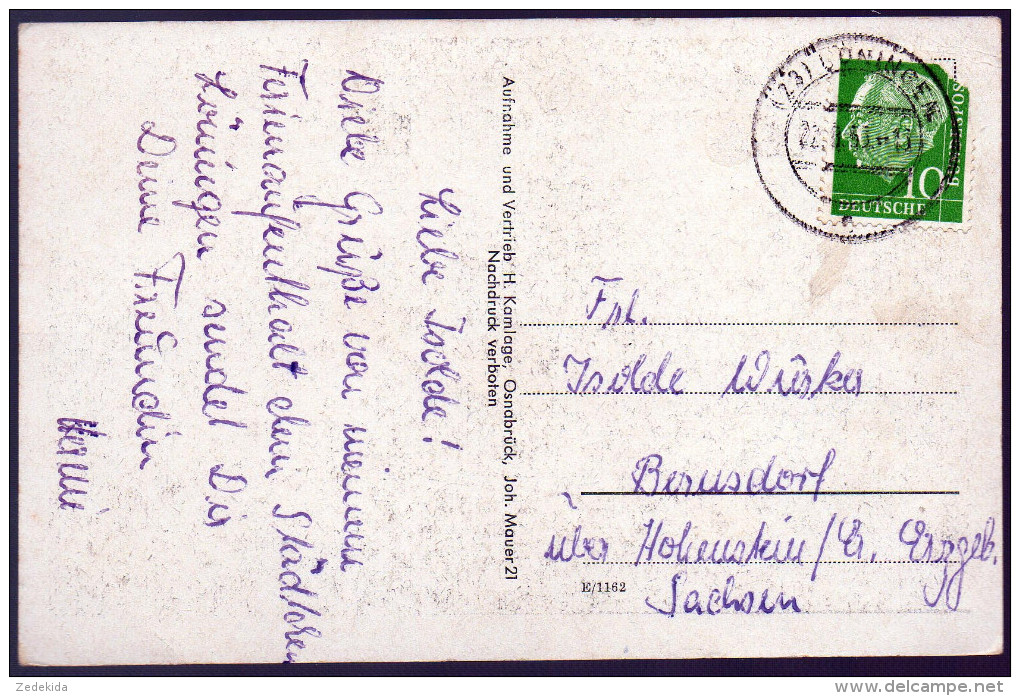 Liebe Isolde!
Viele Grüße von meinem
Ferienaufenthalt dem Städtchen
Löningen sendet Dir
Deine Freundin
Aufnahme und Vertrieb H. Kamlage, Osnabrück, Joh. Mauer 21
Nachdruck verboten
(23) LÖNINGEN
10
DEUTSCHE
BUNDESPOST
Frl.
Isolde
Bernsdorf
über Hohenstein/Er. Erzgeb.
Sachsen
E/1162
Zedekida
delcampe.net